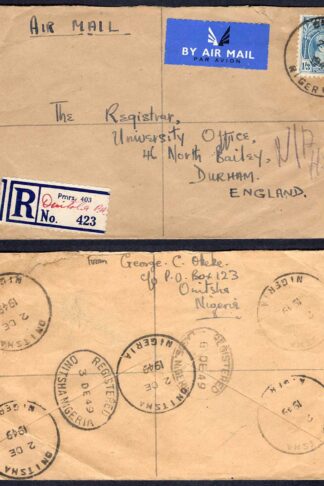 AIR MAIL
BY AIR MAIL
PAR AVION
NIGER
The Registrar,
University Office,
46 North Bailey,
DURHAM.
ENGLAND.
R
Pmrs. 403
Onitsha
No. 423
from George. C. Okeke.
c/o P.O. Box 123
Onitsha
Nigeria
ONITSHA
2 DE
1949
NIGERIA
REGISTERED
3 DE 49
ONITSHA NIGERIA
ONITSHA
2 DE
1949
NIGERIA
REGISTERED
6 DE 49
ONITSHA
2 DE
1949
NIGERIA